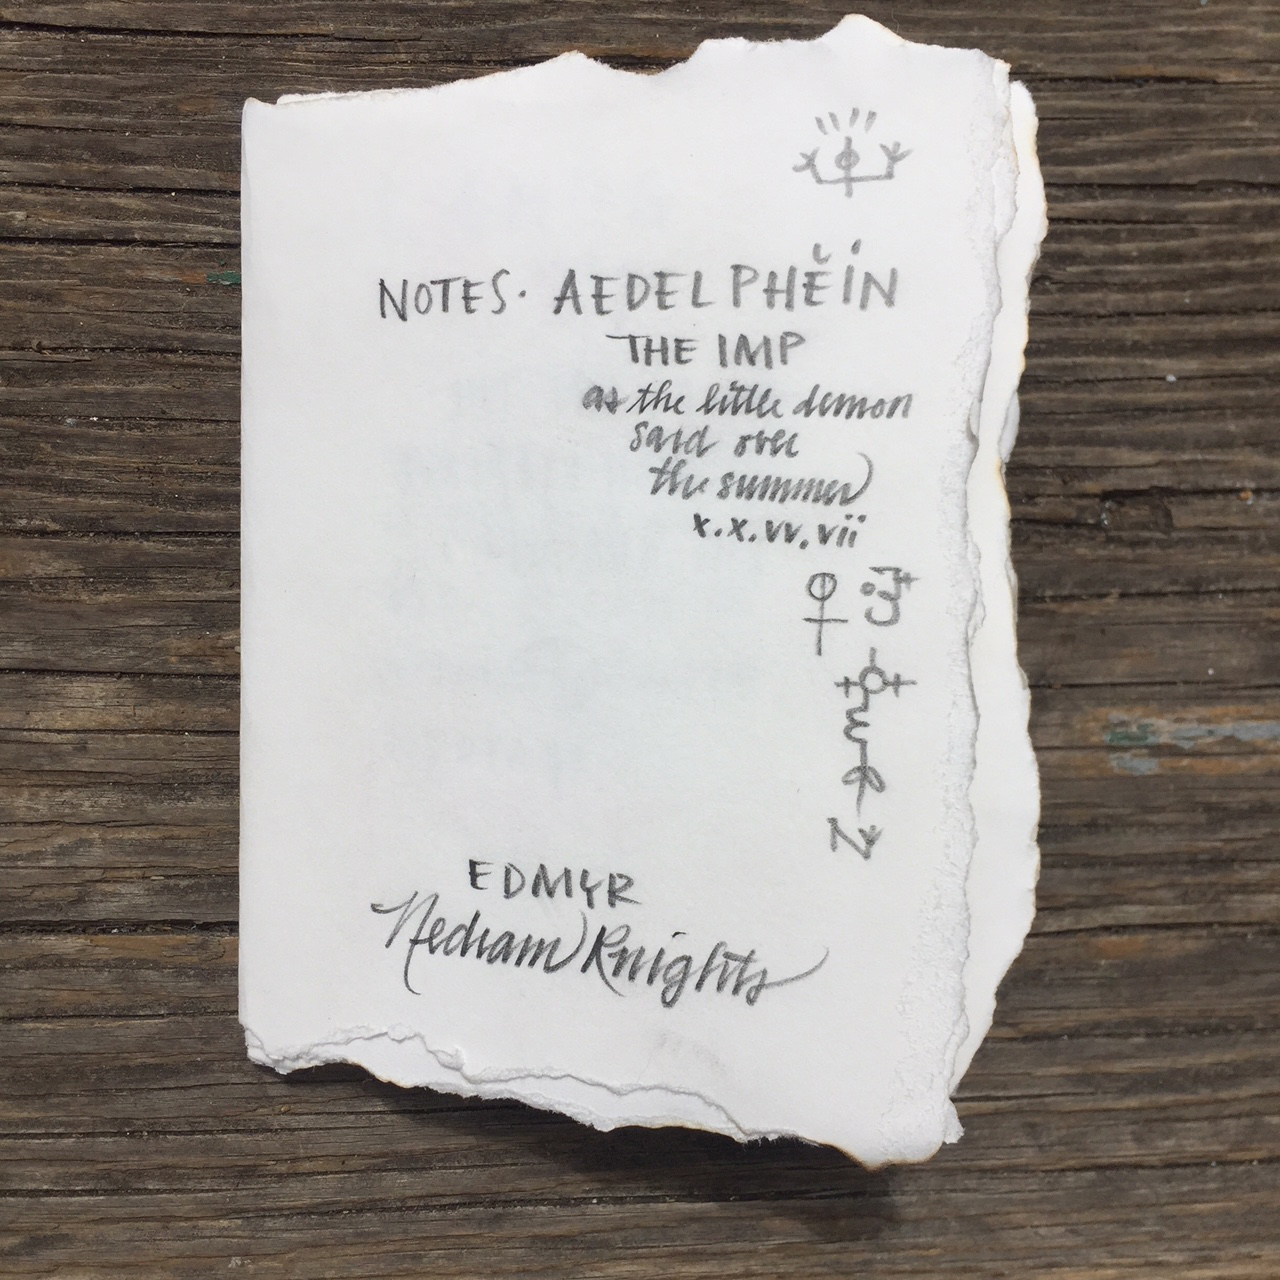 NOTES · AEDELPHĔİN
THE IMP
as the little demon
said over
the summer
x.x.vv.vii
EDMYR
Nedram Knights